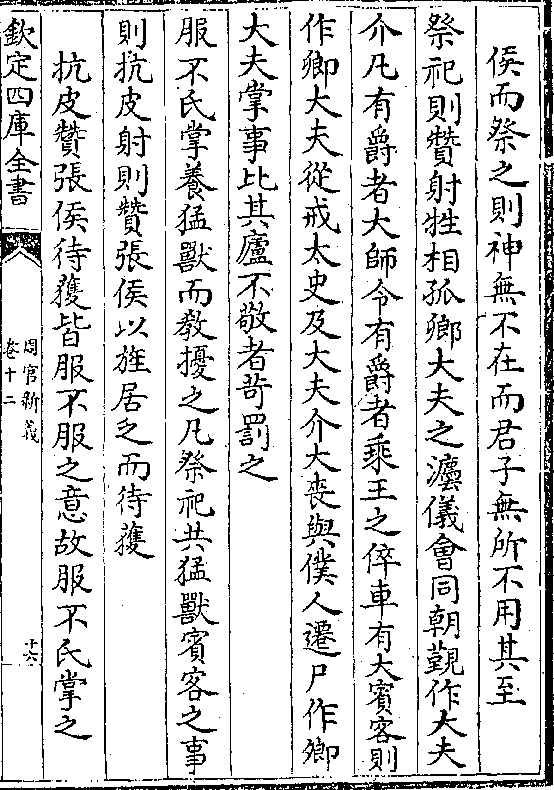 侯而祭之則神無不在而君子無所不用其至
祭祀則贊射牲相孤卿大夫之灋儀會同朝覲作大夫
介凡有爵者大師令有爵者乘王之倅車有大賓客則
作卿大夫從戒太史及大夫介大喪與僕人遷尸作卿
大夫掌事比其廬不敬者苛罰之
服不氏掌養猛獸而教擾之凡祭祀共猛獸賓客之事
則抗皮射則贊張侯以旌居乏而待獲
抗皮贊張侯待獲皆服不服之意故服不氏掌之
欽定四庫全書
周官新義
卷十二
十六